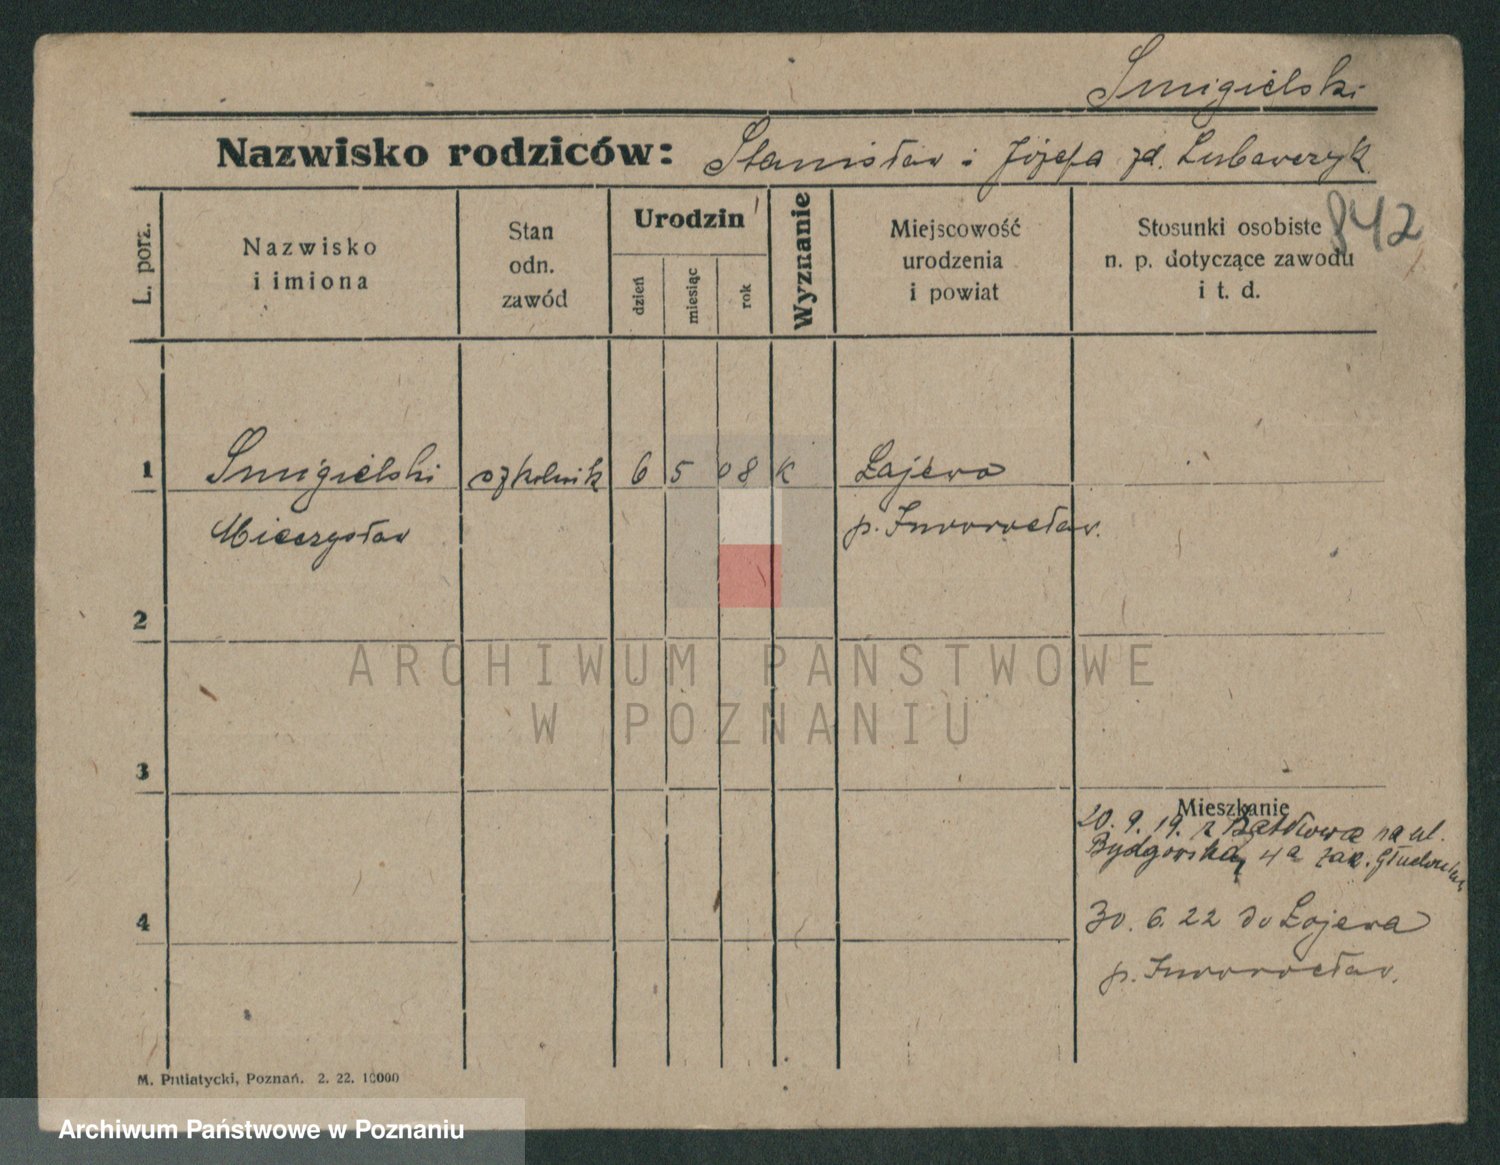 Smigielski
Nazwisko rodziców: Stanisław i Józefa zd. Lubawczyk
842
L. porz.
Nazwisko
i imiona
Stan
odn.
zawód
Urodzin
dzień
miesiąc
rok
Wyznanie
Miejscowość
urodzenia
i powiat
Stosunki osobiste
n. p. dotyczące zawodu
i t. d.
1
Smigielski szkolnik 6 5 08 K Łajewo
Mieczysław p. Inowrocław.
2
ARCHIWUM PAŃSTWOWE
W POZNANIU
3
Mieszkanie
20. 9. 19. z na ul.
Bydgoska, 4a
4
30. 6. 22 do Łojewa
p. Inowrocław.
M. Putiatycki, Poznań. 2. 22. 10000
Archiwum Państwowe w Poznaniu